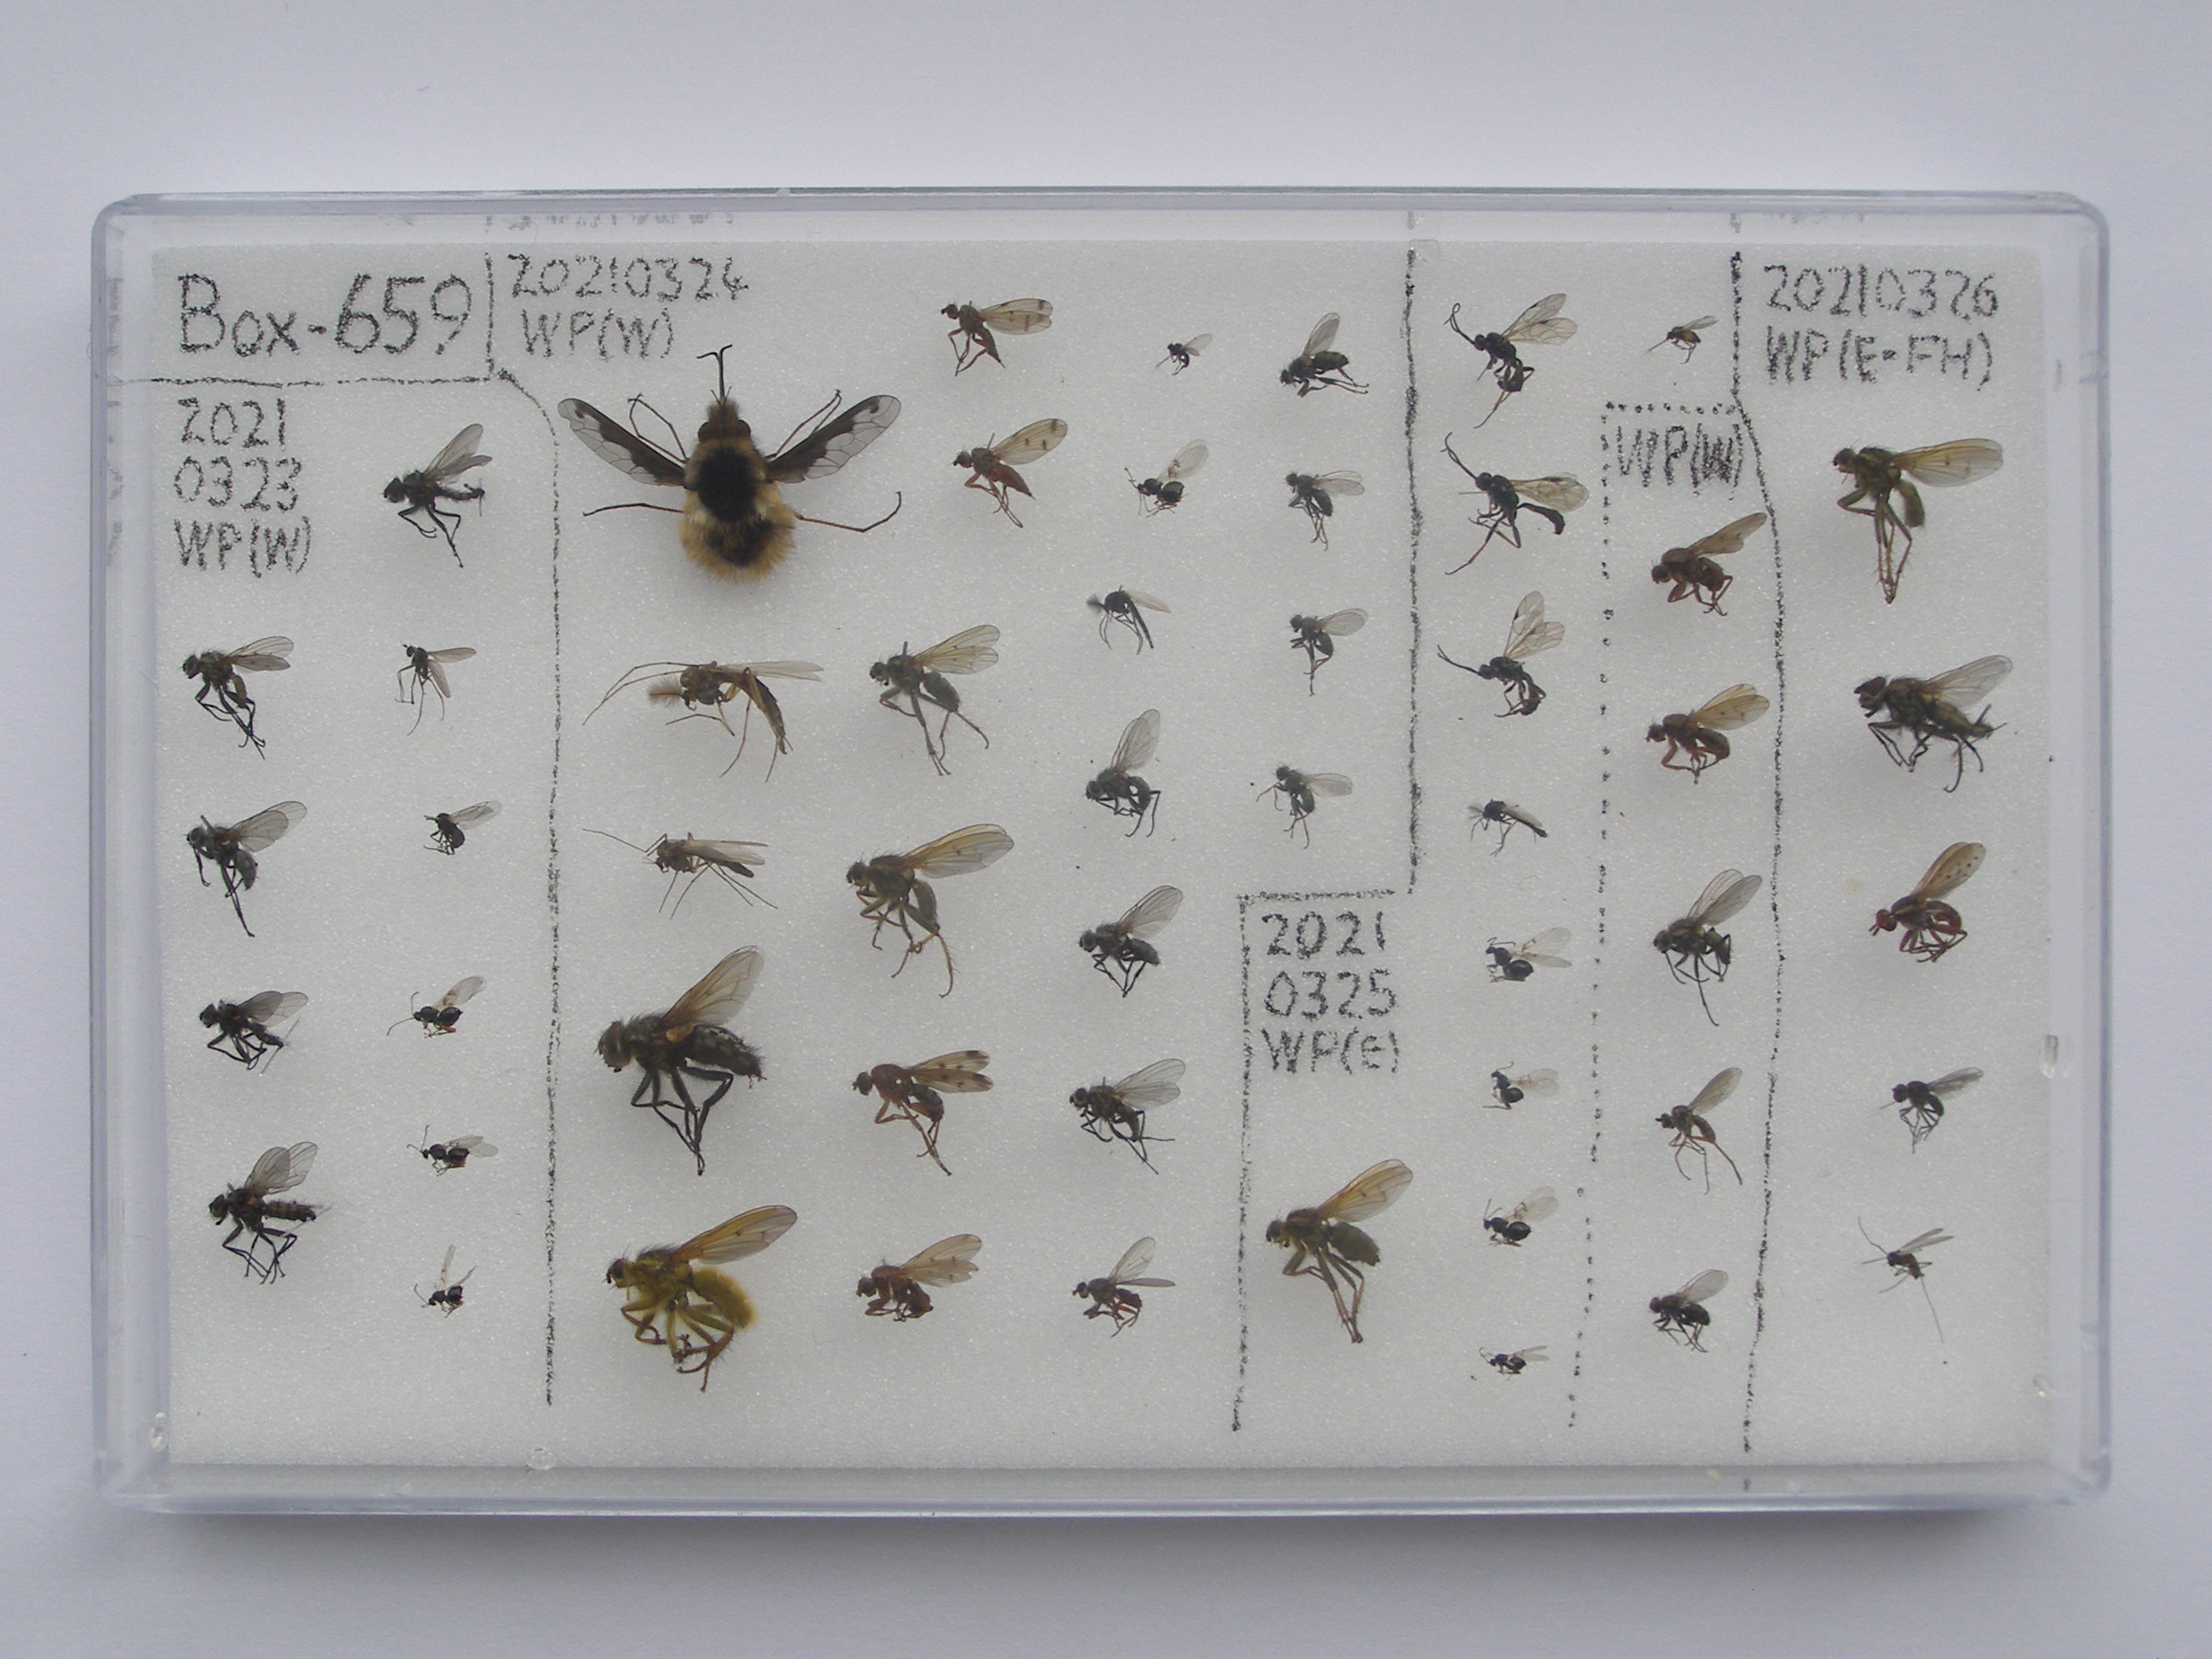 Box-659
2021
0323
WP(W)
20210324
WP(W)
2021
0325
WP(E)
WP(W)
20210326
WP(E-FH)